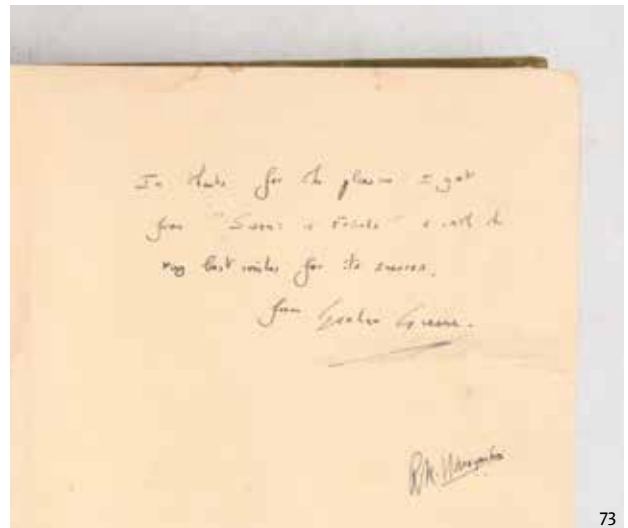 In thanks for the pleasure I got
from "Swami & Friends" & with the
very best wishes for its success,
from Graham Greene.
R.K. Narayan
73